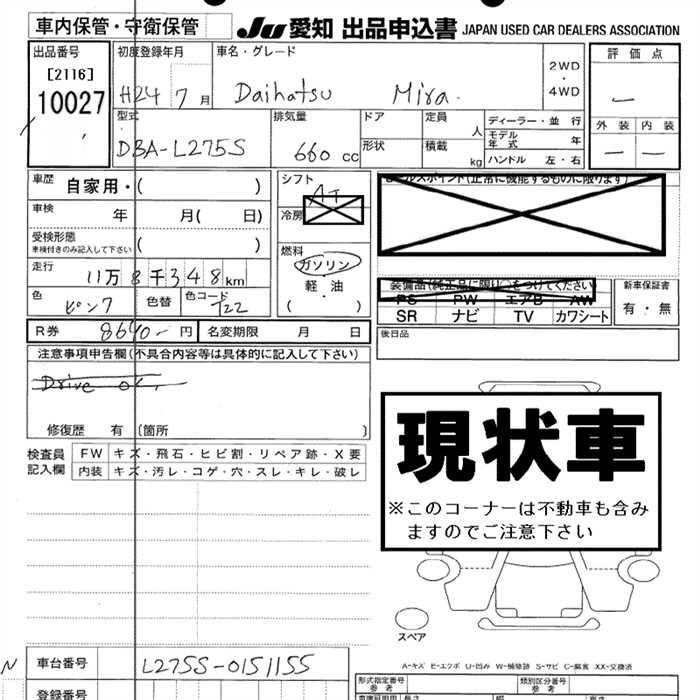 車内保管・守衛保管
JU 愛知 出品申込書 JAPAN USED CAR DEALERS ASSOCIATION
出品番号
[2116]
10027
初度登録年月
H24 7月
車名・グレード
Daihatsu Mira.
2WD
・
4WD
評価点
ー
外装 内装
ー ー
型式
DBA-L275S
排気量
660 cc
ドア
形状
定員 人
積載 kg
ディーラー・並行
モデル年式 年
ハンドル 左・右
車歴 自家用・( )
車検 年 月( 日)
受検形態
車検付きのみ記入して下さい ( )
走行
11万8千348km
色 ピンク 色替 色コード T22
シフト
AT
冷房
燃料
ガソリン
・
軽・油
( )
セールスポイント(正常に機能するものに限ります)
装備品(純正品に限り○をつけてください)
PS PW エアB AW
SR ナビ TV カワシート
新車保証書
有・無
後日品
R券 8640-円 名変期限 月 日
注意事項申告欄(不具合内容等は具体的に記入して下さい)
Drive
修復歴 有 〔箇所 〕
検査員記入欄
FW キズ・飛石・ヒビ割・リペア跡・X要
内装 キズ・汚レ・コゲ・穴・スレ・キレ・破レ
現状車
※このコーナーは不動車も含み
ますのでご注意下さい
スペア
A-キズ E-エクボ U-凹み W-補修跡 S-サビ C-腐食 XX-交換済
N
車台番号 L275S-0151155
登録番号
形式指定番号
参考
類別区分番号
参考
長さ 幅 高さ